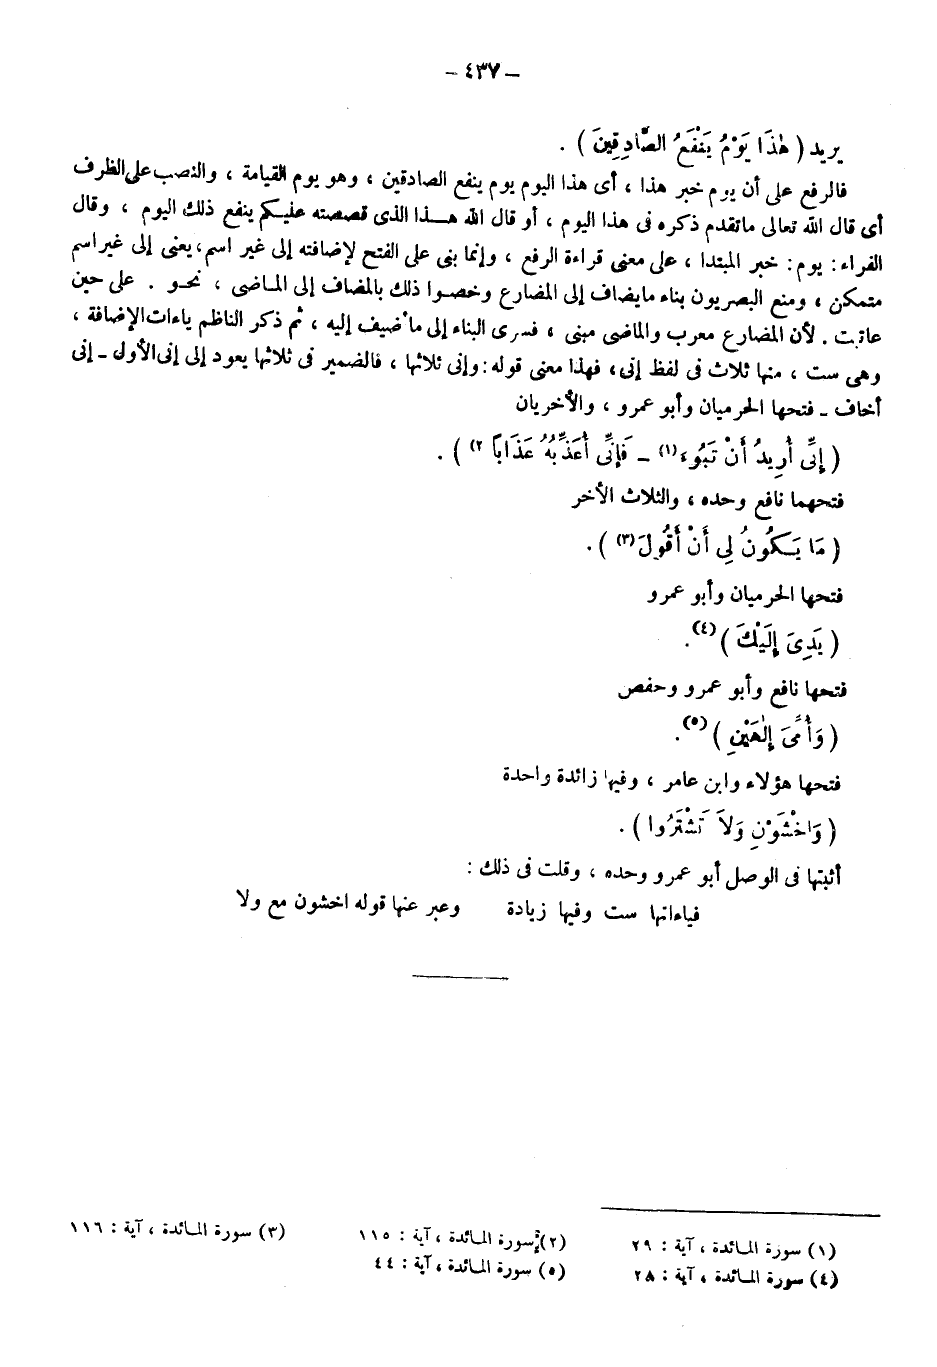 – ٤٣٧ –
يريد ( هٰذَا يَوْمُ يَنْفَعُ الصَّادِقِينَ ) .
فالرفع على أن يوم خبر هذا ، أى هذا اليوم يوم ينفع الصادقين ، وهو يوم القيامة ، والنصب على الظرف
أى قال الله تعالى ماتقدم ذكره فى هذا اليوم ، أو قال الله هــذا الذى قصصته عليكم ينفع ذلك اليوم ، وقال
الفراء : يوم : خبر المبتدا ، على معنى قراءة الرفع ، وإنما بنى على الفتح لإضافته إلى غير اسم، يعنى إلى غير اسم
متمكن ، ومنع البصريون بناء مايضاف إلى المضارع وخصــوا ذلك بالمضاف إلى المـاضى ، نحــو . على حين
عاتبت . لأن المضارع معرب والماضى مبنى ، فسرى البناء إلى ما ضيف إليه ، ثم ذكر الناظم ياءات الإضافة ،
وهى ست ، منها ثلاث فى لفظ إنى، فهذا معنى قوله : وإنى ثلاثها ، فالضمير فى ثلاثها يعود إلى إنى الأول ــ إنى
أخاف ــ فتحها الحرميان وأبو عمرو ، والأخريان
( إِنِّى أُرِيدُ أَنْ تَبُوءَ (١) ــ فَإِنِّى أُعَذِّبُهُ عَذَاباً ٢) ) .
فتحهما نافع وحده ، والثلاث الأخر
( مَا يَـكُونُ لِى أَنْ أَقُولَ (٣) ) .
فتحها الحرميان وأبو عمرو
( يَدِىَ إِلَيْكَ ) (٤).
فتحها نافع وأبو عمرو وحفص
( وَأُمِّىَ إِلٰهَيْنِ ) (٥).
فتحها هؤلاء وابن عامر ، وفيها زائدة واحدة
( وَاخْشَوْنِ وَلاَ تَشْتَرُوا ) .
أثبتها فى الوصل أبو عمرو وحده ، وقلت فى ذلك :
فياءاتها ست وفيها زيادة وعبر عنها قوله اخشون مع ولا
(١) سورة المـائدة ، آية : ٢٩ (٢) سورة المـائدة ، آية : ١١٥ (٣) سورة المـائدة ، آية : ١١٦
(٤) سورة المـائدة ، آية : ٢٨ (٥) سورة المـائدة ، آية : ٤٤